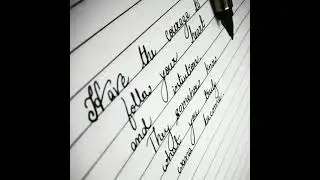 Have the courage to
follow your heart
and intuition
They somehow know
what you truly
wanna become